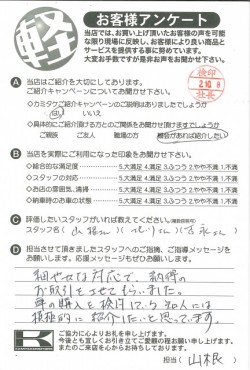 軽
お客様アンケート
当店では、お買い上げ頂いたお客様の声を可能
な限り現場に反映し、お客様により良い商品と
サービスを提供する事に努めています。
大変お手数ですが是非お声をお聞かせ下さい。
A 当店はご紹介を大切にしております。
ご紹介キャンペーンについてお聞かせ下さい。
・カミタケご紹介キャンペーンのご説明はありましたでしょうか
はい いいえ
・具体的にご紹介頂ける方とのご関係をお聞かせ頂けますでしょうか
ご親族 ご友人 職場の方 機会があれば紹介したい
B 当店を実際にご利用になった印象をお聞かせ下さい。
◇総合的な満足度 5.大満足 4.満足 3.ふつう 2.やや不満 1.不満
◇スタッフの対応 5.大満足 4.満足 3.ふつう 2.やや不満 1.不満
◇お店の雰囲気、清掃 5.大満足 4.満足 3.ふつう 2.やや不満 1.不満
◇納車時のお車の状態 5.大満足 4.満足 3.ふつう 2.やや不満 1.不満
C 評価したいスタッフがいれば教えてください。(複数回答可)
スタッフ名
D 担当させて頂きましたスタッフへのご指摘、ご指導メッセージを
お願いします。応援メッセージもぜひお願いします。
対応で、納得の
お取引をさせてもらいました。
車の購入を検討している知人には
積極的に紹介したいと思ってます。
K
ご協力に心よりお礼を申し上げます。
今後とも宜しくお引き立てご愛顧の程お願い申し上げます。
またのご来店を心からお待ちしております。
担当( 山根 )